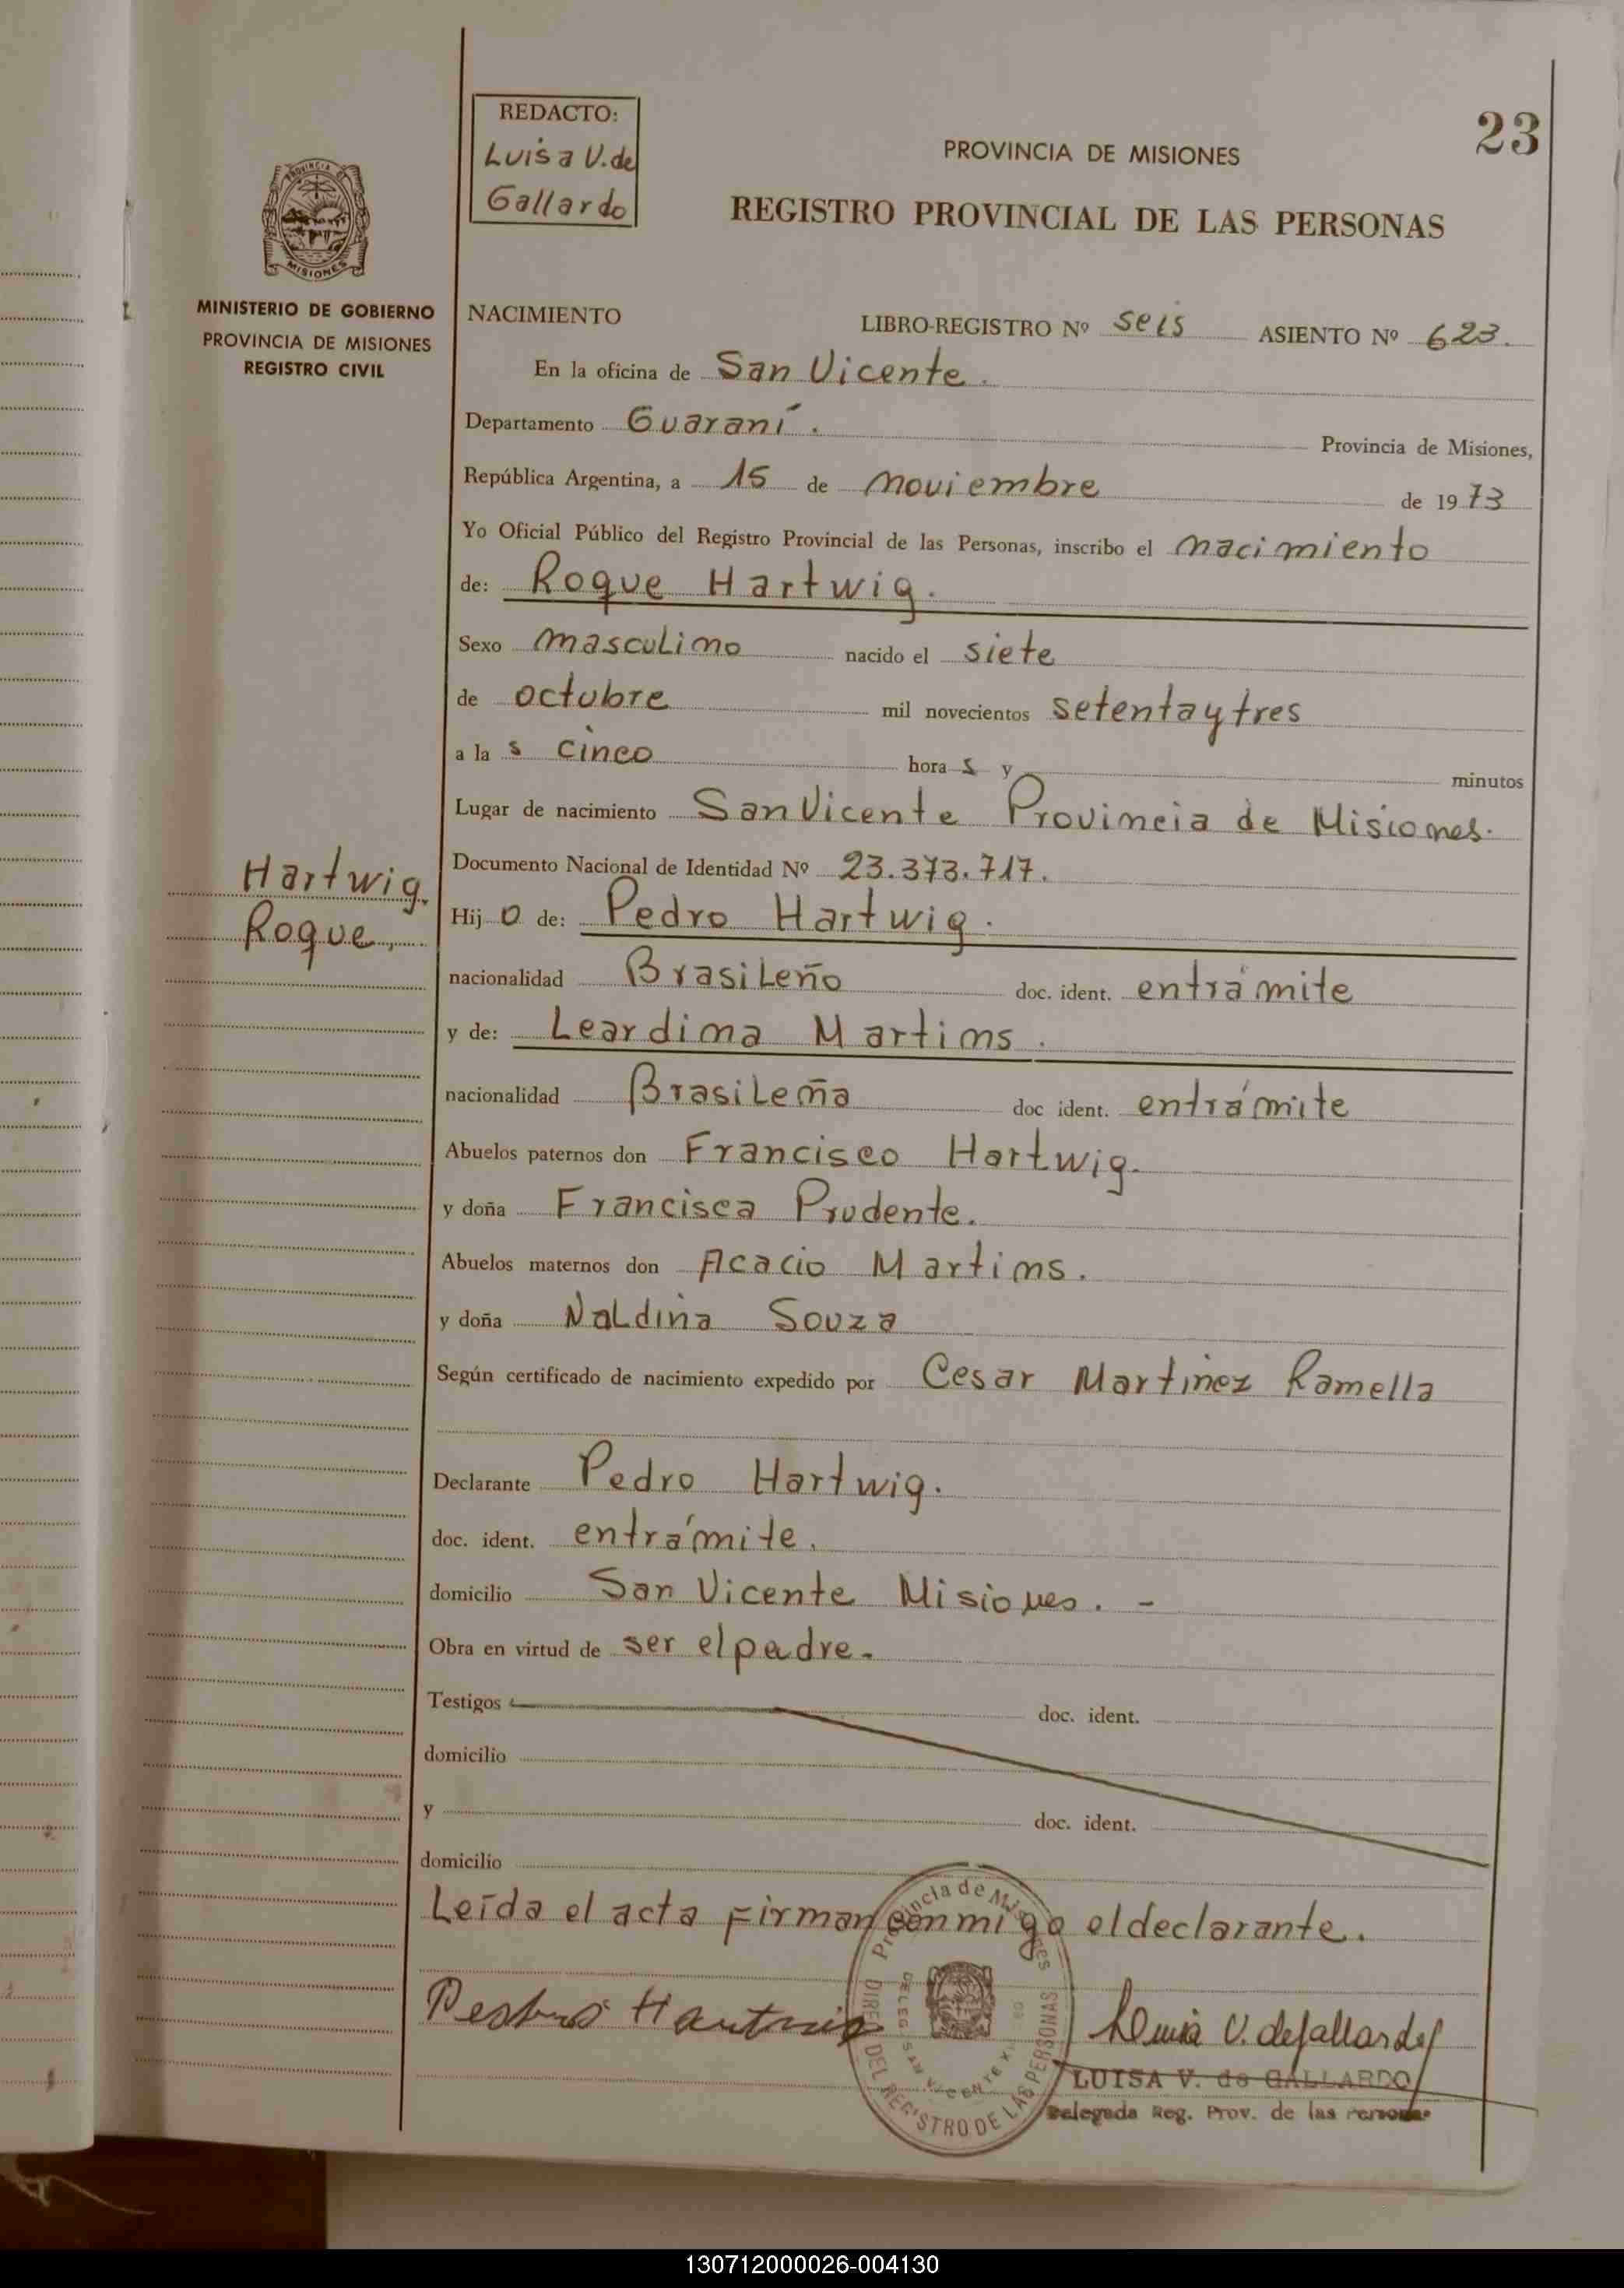 REDACTO:
Luisa V. de
Gallardo
23
PROVINCIA DE MISIONES
REGISTRO PROVINCIAL DE LAS PERSONAS
PROVINCIA DE
MISIONES
MINISTERIO DE GOBIERNO
PROVINCIA DE MISIONES
REGISTRO CIVIL
NACIMIENTO LIBRO-REGISTRO Nº seis ASIENTO Nº 623.
En la oficina de San Vicente.
Departamento Guaraní. Provincia de Misiones,
República Argentina, a 15 de noviembre de 1973
Yo Oficial Público del Registro Provincial de las Personas, inscribo el nacimiento
de: Roque Hartwig.
Sexo masculino nacido el siete
de octubre mil novecientos setentaytres
a la s cinco hora s y minutos
Lugar de nacimiento San Vicente Provincia de Misiones.
Documento Nacional de Identidad Nº 23.373.717.
Hartwig,
Roque,
Hij o de: Pedro Hartwig.
nacionalidad Brasileño doc. ident. entrámite
y de: Leardina Martins.
nacionalidad Brasileña doc ident. entrámite
Abuelos paternos don Francisco Hartwig.
y doña Francisca Prudente.
Abuelos maternos don Acacio Martins.
y doña Naldina Souza
Según certificado de nacimiento expedido por Cesar Martinez Ramella
Declarante Pedro Hartwig.
doc. ident. entrámite.
domicilio San Vicente Misiones. -
Obra en virtud de ser el padre.
Testigos doc. ident.
domicilio
y doc. ident.
domicilio
Leída el acta firman conmigo el declarante.
Provincia de Misiones
DIREC. DEL REGISTRO DE LAS PERSONAS
DELEG. SAN VICENTE
Luisa V. de Gallardo
LUISA V. de GALLARDO
Delegada Reg. Prov. de las Personas
130712000026-004130